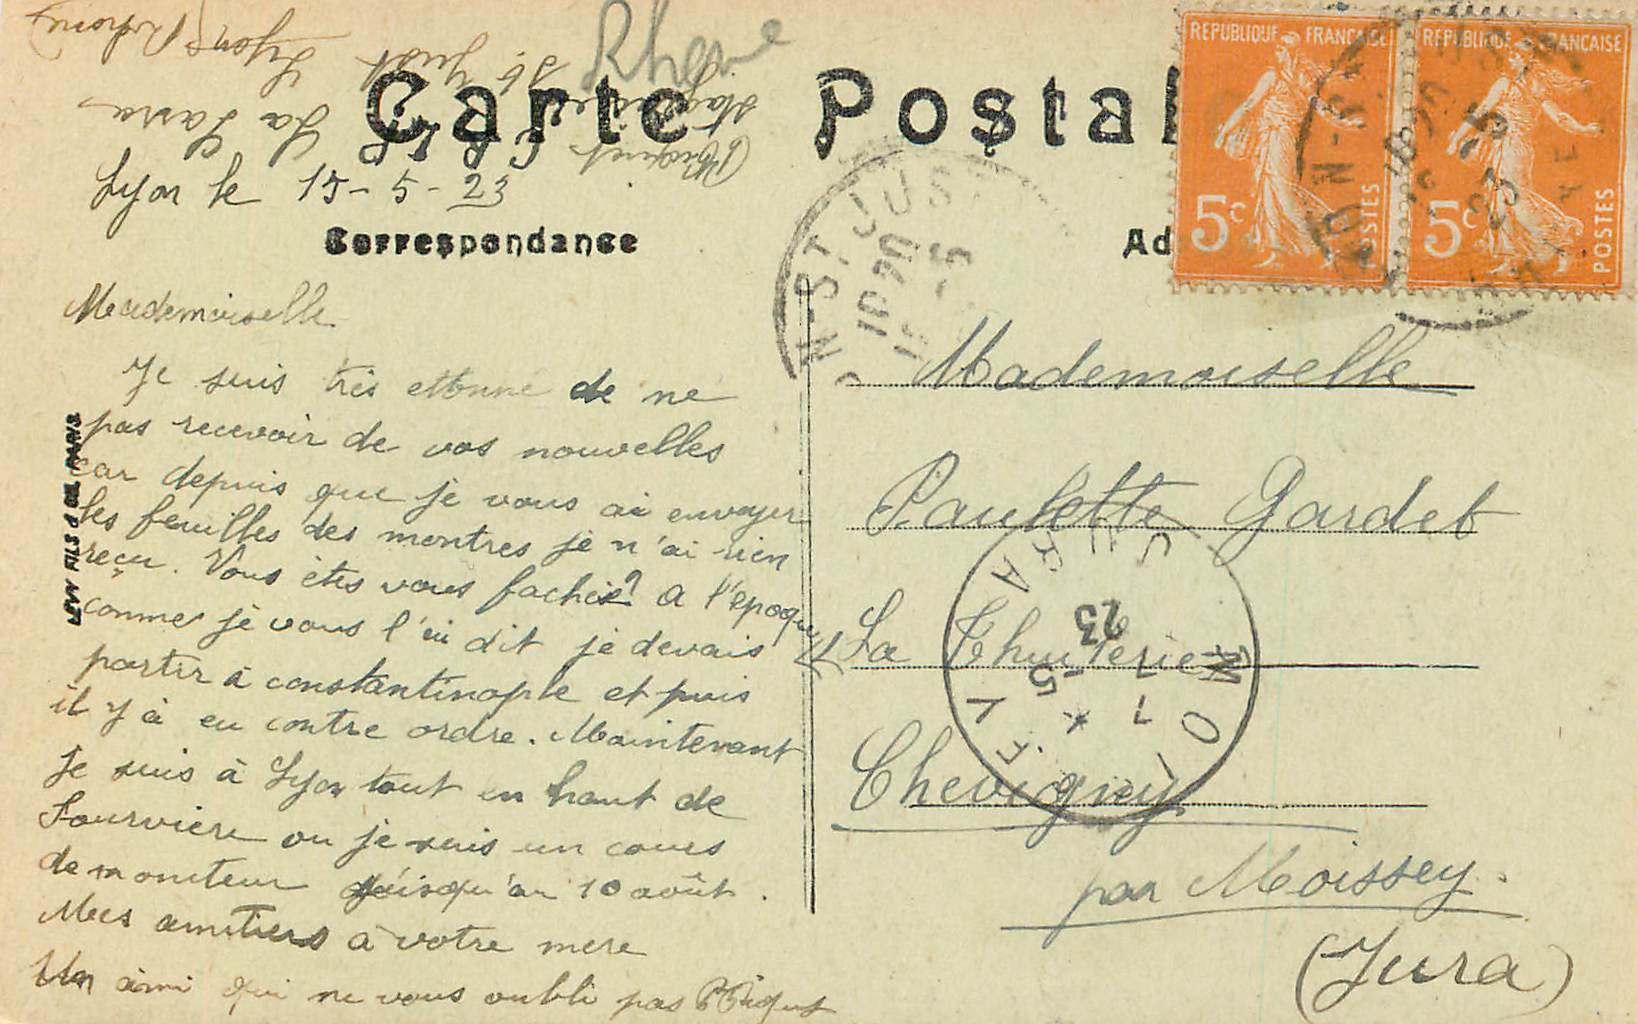 Rhone
Carte Postal
St Just Lyon (Rhone)
Lyon le 15-5-23
Correspondance
Ad
REPUBLIQUE FRANCAISE
5c
POSTES
REPUBLIQUE FRANCAISE
5c
POSTES
N-ST JUST
Mademoiselle
Je suis très ettonné de ne
pas recevoir de vos nouvelles
car depuis que je vous ai envoyer
les feuilles des montres je n'ai rien
reçu. Vous êtes vous fachée? a l'époque
comme je vous l'ai dit je devais
partir à constantinople et puis
il y à eu contre ordre. Maintenant
Je suis à Lyon tout en haut de
Fourvière ou je suis un cours
de moniteur jusqu'au 10 août.
Mes amitiers à votre mere
Un ami qui ne vous oubli pas
LEVY FILS & CIE PARIS
Mademoiselle
Paulette Gardet
La Thuilerie
Chevigny
par Moissey.
(Jura)
MOISSEY
JURA
7-5
23